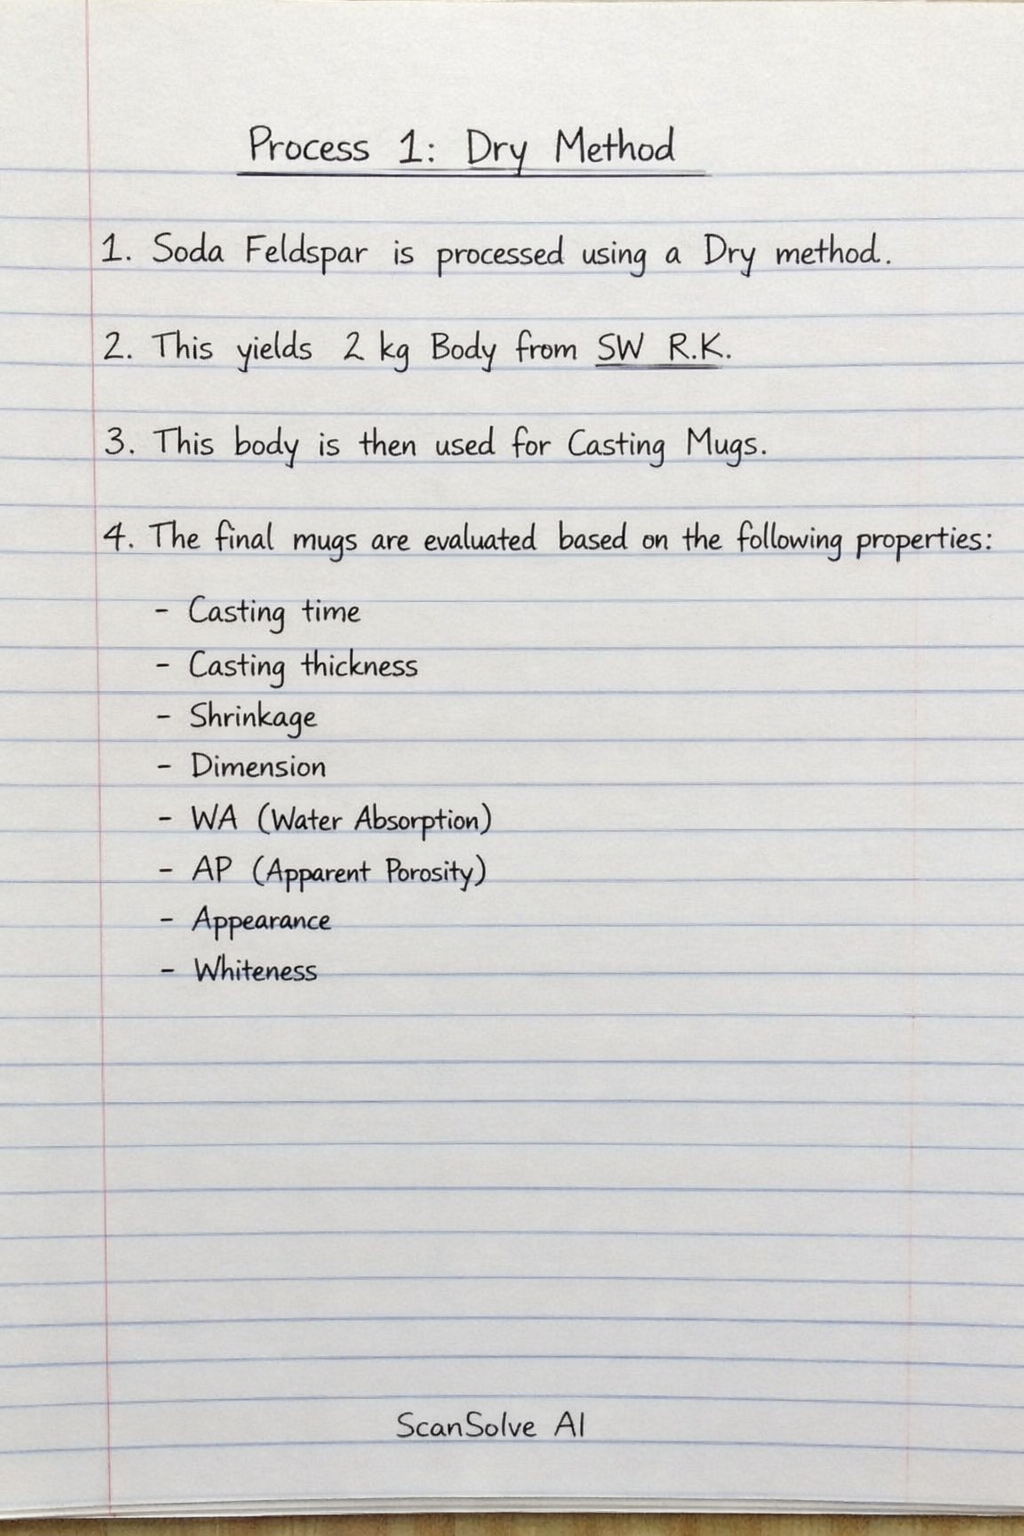 Process 1: Dry Method
1. Soda Feldspar is processed using a Dry method.
2. This yields 2 kg Body from SW R.K.
3. This body is then used for Casting Mugs.
4. The final mugs are evaluated based on the following properties:
- Casting time
- Casting thickness
- Shrinkage
- Dimension
- WA (Water Absorption)
- AP (Apparent Porosity)
- Appearance
- Whiteness
ScanSolve AI